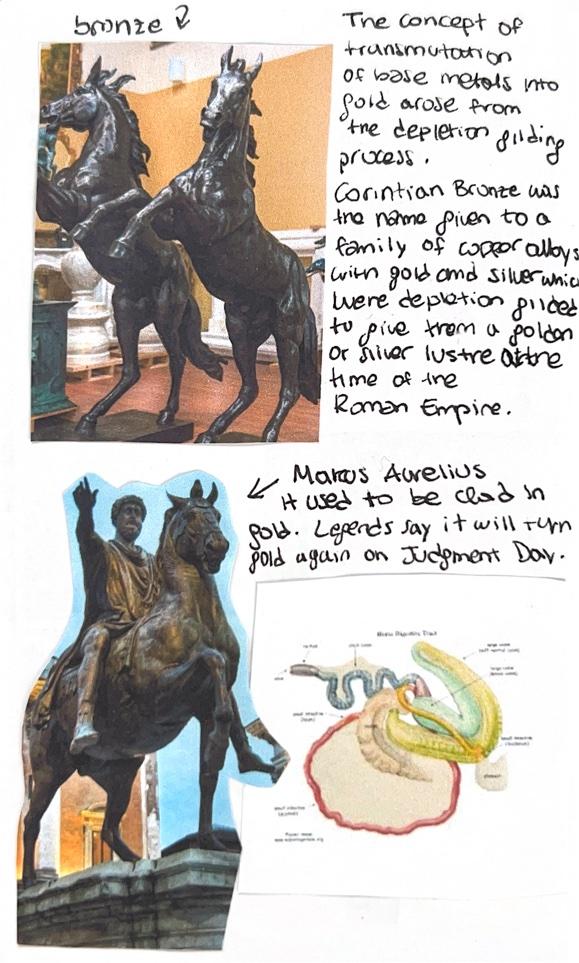 bronze
The concept of
transmutation
of base metals into
gold arose from
the depletion gilding
process.
Corintian Bronze was
the name given to a
family of copper alloys
with gold and silver which
were depletion gilded
to give them a golden
or silver lustre at the
time of the
Roman Empire.
Marcus Aurelius
it used to be clad in
gold. Legends say it will turn
gold again on Judgment Day.
Horse Digestive Tract
small intestine